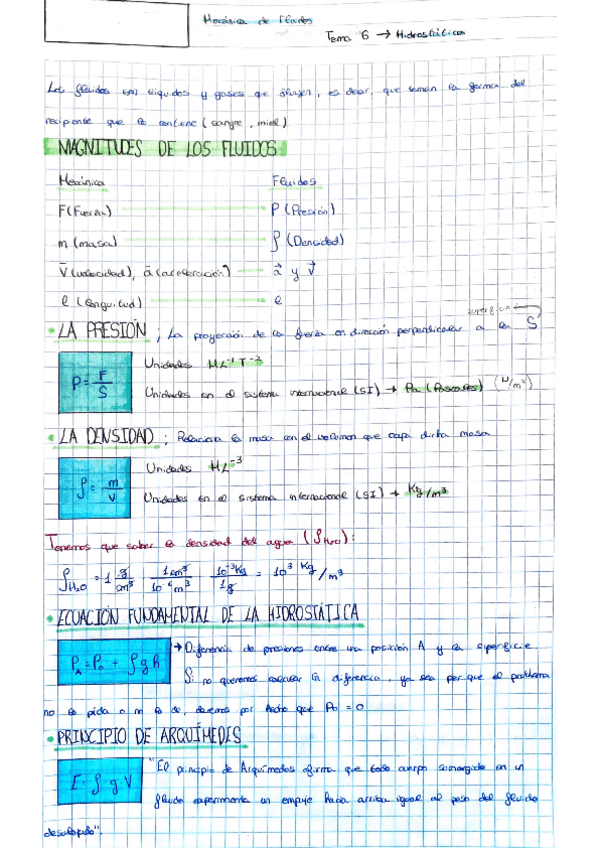 Mecánica de Fluidos
Tema 6 → Hidrostática
Los fluidos son líquidos y gases que fluyen, es decir, que toman la forma del
recipiente que lo contiene (sangre, miel)
MAGNITUDES DE LOS FLUIDOS
Mecánica Fluidos
F (Fuerza) P (Presión)
m (masa) ρ (Densidad)
v⃗ (velocidad), a⃗ (aceleración) a⃗ y v⃗
l (longitud) l
superficie
• LA PRESIÓN ; La proyección de la fuerza en dirección perpendicular a la S
P = F/S
Unidades ML⁻¹T⁻²
Unidades en el sistema internacional (SI) → Pa (Pascales) (N/m²)
• LA DENSIDAD ; Relaciona la masa con el volumen que ocupa dicha masa
ρ = m/V
Unidades ML⁻³
Unidades en el sistema internacional (SI) → Kg/m³
Tenemos que saber la densidad del agua (ρH₂O):
ρH₂O = 1 g/cm³ 1cm³/10⁻⁶m³ 10⁻³Kg/1g = 10³ Kg/m³
• ECUACIÓN FUNDAMENTAL DE LA HIDROSTÁTICA
P_A = P₀ + ρgh
→ Diferencia de presiones entre una posición A y la superficie.
Si no queremos calcular la diferencia, ya sea por que el problema
no lo pida o no lo de, daremos por hecho que P₀ = 0
• PRINCIPIO DE ARQUÍMEDES
E = ρ g V
"El principio de Arquímedes afirma que todo cuerpo sumergido en un
fluido experimenta un empuje hacia arriba igual al peso del fluido
desalojado"